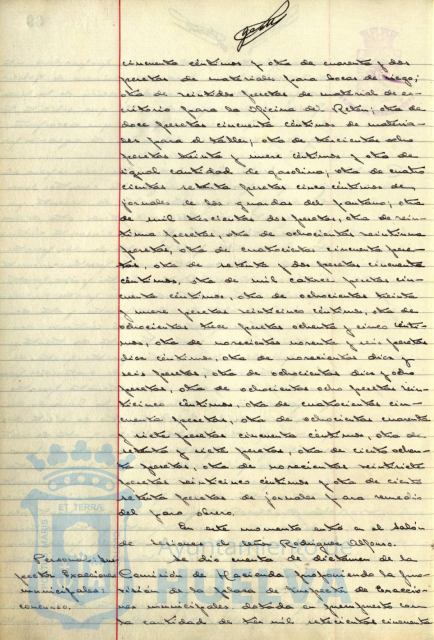 cincuenta céntimos y otra de cuarenta y dos
pesetas de materiales para bocas de riego;
otra de veintidós pesetas de material de es-
critorio para la Oficina del Retén; otra de
doce pesetas cincuenta céntimos de materia-
les para el taller; otra de trescientas ocho
pesetas treinta y nueve céntimos y otra de
igual cantidad de gasolina; otra de cuatro
cientas setenta pesetas cinco céntimos de
jornales de los guardas del pantano; otra
de mil trescientas dos pesetas, otra de vein-
tiuna pesetas, otra de ochocientas veintiuna
pesetas, otra de cuatrocientas cincuenta pese-
tas, otra de setenta y dos pesetas cincuenta
céntimos, otra de mil catorce pesetas cin-
cuenta céntimos, otra de ochocientas treinta
y nueve pesetas veinticinco céntimos, otra de
ochocientas trece pesetas ochenta y cinco cénti-
mos, otra de novecientas noventa y seis pesetas
doce céntimos, otra de novecientas diez y
seis pesetas, otra de ochocientas diez y ocho
pesetas, otra de ochocientas ocho pesetas vein-
ticinco céntimos, otra de cuatrocientas cin-
cuenta pesetas, otra de ochocientas cuarenta
y siete pesetas cincuenta céntimos, otra de
setenta y siete pesetas, otra de ciento ochen-
ta pesetas, otra de novecientas veintisiete
pesetas veinticinco céntimos y otra de ciento
setenta pesetas de jornales para remedio
del paro obrero.
En este momento entró en el Salón
de sesiones el señor Rodríguez Alfonso.
Personal: Ins-
pector Exacciones
municipales:
concurso.
Se dio cuenta de dictamen de la
Comisión de Hacienda proponiendo la pro-
visión de la plaza de Inspector de Exaccio-
nes municipales dotada en presupuesto con
la cantidad de tres mil setecientas cincuenta
Ayuntamiento de
HUELVA